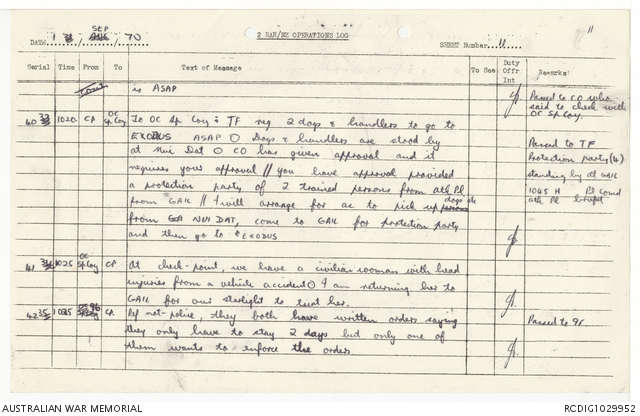 SEP
DATE 1 / AUG / 70
2 RAR/NZ OPERATIONS LOG
SHEET Number 11
11
Serial Time From To Text of Message To See Duty Offr Int Remarks
is ASAP
Passed to CO who
said to check with
OC Sp Coy.
40 1020 CP OC Sp Coy To OC Sp Coy & TF req 2 dogs & handlers to go to
EXODUS ASAP O Dogs & handlers are stood by
at Nui Dat O CO has given approval and it
requires your approval // you have approval provided
a protection party of 2 trained persons from atk Pl
from GAIL // I will arrange for ac to pick up dogs etc
from NUI DAT, come to GAIL for protection party
and then go to EXODUS
Passed to TF
Protection party (4)
standing by at GAIL
1045 H Pl Comd
atk Pl briefed
41 1025 OC Sp Coy CP At check-point, we have a civilian woman with head
injuries from a vehicle accident O I am returning her to
GAIL for our starlight to treat her.
42 1035 96 CP Ref nat-police, they both have written orders saying
they only have to stay 2 days but only one of
them wants to enforce the orders
Passed to 9r
AUSTRALIAN WAR MEMORIAL
RCDIG1029952